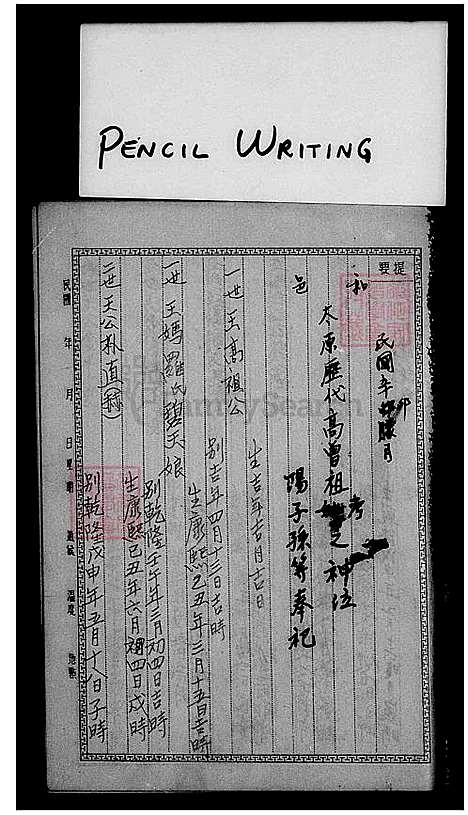 PENCIL WRITING
提要
民國辛卯臘月
和
岑原歷代高曾祖考之神位
邑
陽子孫等奉祀
生吉年吉月吉日
一世王高祖公
別吉年四月十三日吉時
生康熙己丑年三月十五日吉時
一世王媽羅氏碧天娘
別乾隆壬午年三月初四日吉時
生康熙己丑年六月初四日戌時
二世王公朴直
別乾隆戊申年五月十八日子時
民國 年 月 日 星期 溫度
FamilySearch